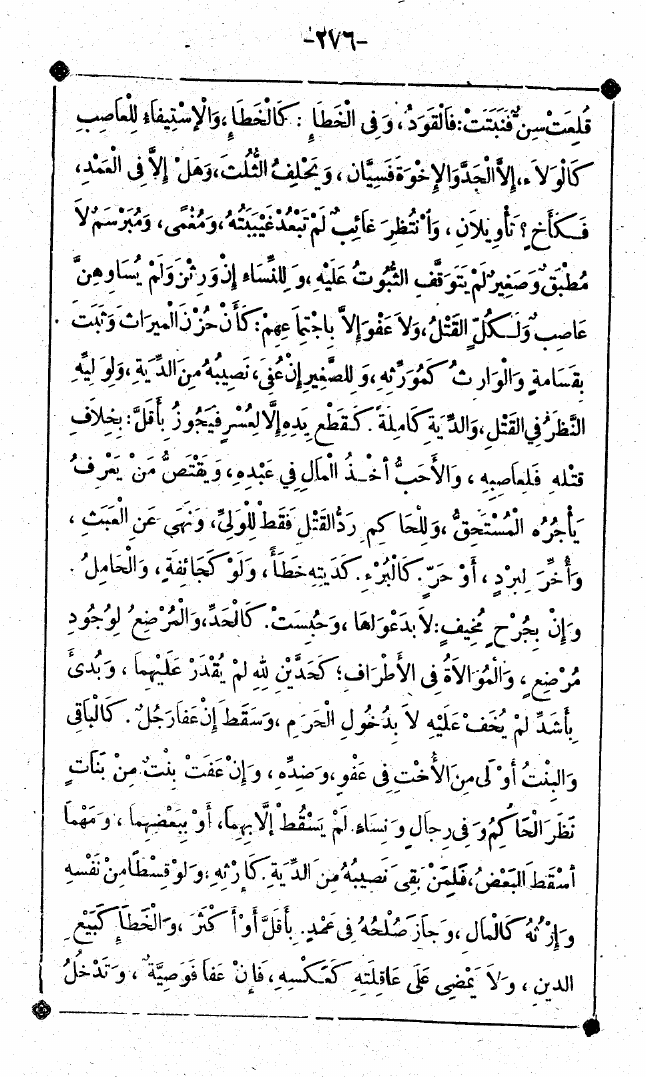 -٢٧٦-
قُلِعَتْ سِنٌّ فَنَبَتَتْ: فَالْقَوَدُ، وَفِى الْخَطَإِ: كَالْخَطَإِ، وَالْإِسْتِيفَاءُ لِلْعَاصِبِ
كَالْوَلَاءِ، إِلَّا الْجَدَّ وَالْإِخْوَةَ فَسِيَّانِ، وَيَحْلِفُ الثُّلُثَ، وَهَلْ إِلَّا فِى الْعَمْدِ،
فَكَأَخٍ؟ تَأْوِيلَانِ، وَانْتُظِرَ غَائِبٌ لَمْ تَبْعُدْ غَيْبَتُهُ، وَمُغْمًى، وَمُبَرْسَمٌ لَا
مُطْبَقٌ وَصَغِيرٌ لَمْ يَتَوَقَّفِ الثُّبُوتُ عَلَيْهِ، وَلِلنِّسَاءِ إِنْ وَرِثْنَ وَلَمْ يُسَاوِهِنَّ
عَاصِبٌ وَلِكُلٍّ الْقَتْلُ، وَلَا عَفْوَ إِلَّا بِاجْتِمَاعِهِمْ: كَأَنْ حُزْنَ الْمِيرَاثَ وَثَبَتَ
بِقَسَامَةٍ وَالْوَارِثُ كَمُوَرِّثِهِ، وَلِلصَّغِيرِ إِنْ عُفِىَ، نَصِيبُهُ مِنَ الدِّيَةِ، وَلِوَلِيِّهِ
النَّظَرُ فِى الْقَتْلِ، وَالدِّيَةِ كَامِلَةً. كَقَطْعِ يَدِهِ إِلَّا لِعُسْرٍ فَيَجُوزُ بِأَقَلَّ: بِخِلَافِ
قَتْلِهِ فَلِعَاصِبِهِ، وَالْأَحَبُّ أَخْذُ الْمَالِ فِى عَبْدِهِ، وَيَقْتَصُّ مَنْ يَعْرِفُ
يَأْجُرُهُ الْمُسْتَحِقُّ، وَلِلْحَاكِمِ رَدُّ الْقَتْلِ فَقَطْ لِلْوَلِيِّ، وَنَهَى عَنِ الْعَبَثِ،
وَأُخِّرَ لِبَرْدٍ، أَوْ حَرٍّ. كَالْبُرْءِ. كَدِيَتِهِ خَطَأً، وَلَوْ كَجَائِفَةٍ، وَالْحَامِلُ.
وَإِنْ بِجُرْحٍ مُخِيفٍ: لَا بِدَعْوَاهَا، وَحُبِسَتْ. كَالْحَدِّ، وَالْمُرْضِعُ لِوُجُودِ
مُرْضِعٍ، وَالْمُوَالَاةُ فِى الْأَطْرَافِ؛ كَحَدَّيْنِ لِلهِ لَمْ يُقْدَرْ عَلَيْهِمَا، وَبُدِىَٔ
بِأَشَدَّ لَمْ يُخَفْ عَلَيْهِ لَا بِدُخُولِ الْحَرَمِ، وَسَقَطَ إِنْ عَفَا رَجُلٌ. كَالْبَاقِى
وَالْبِنْتُ أَوْلَى مِنَ الْأُخْتِ فِى عَفْوٍ، وَضِدِّهِ، وَإِنْ عَفَتْ بِنْتٌ مِنْ بَنَاتٍ
نَظَرَ الْحَاكِمُ وَفِى رِجَالٍ وَنِسَاءٍ. لَمْ يَسْقُطْ إِلَّا بِهِمَا، أَوْ بِبَعْضِهِمَا، وَمَهْمَا
أَسْقَطَ الْبَعْضُ، فَلِمَنْ بَقِىَ نَصِيبُهُ مِنَ الدِّيَةِ. كَإِرْثِهِ، وَلَوْ قِسْطًا مِنْ نَفْسِهِ
وَإِرْثُهُ كَالْمَالِ، وَجَازَ صُلْحُهُ فِى عَمْدٍ. بِأَقَلَّ أَوْ أَكْثَرَ، وَالْخَطَإِ كَبَيْعِ
الدين، وَلَا يَمْضِى عَلَى عَاقِلَتِهِ كَعَكْسِهِ، فَإِنْ عَفَا فَوَصِيَّةٌ، وَتَدْخُلُ